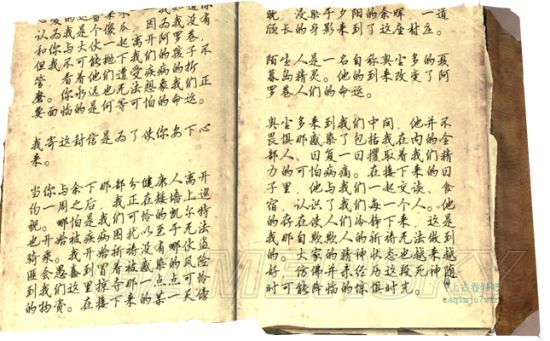 和你与我一起离开阿罗卷，
但我不可能抛下我们的孩子不
管，看着他们遭受疾病的折
磨。你永远也无法想象我们正
要面临的是何等可怕的命运。
我寄这封信是为了使你安下心
来。
当你与余下那部分健康人离开
约一周之后，我们正在矮墙上巡
视。哪怕是最可怜的凯尔特
也开始被疾病困扰以至于无法
骑乘。我祈祷没有那伙盗
匪会愚蠢到冒着被感染风险
到我们里掠夺那点点可怜
的物资。在接下来的某一天傍
耽，没染于夕阳的余晖，一道
颀长的身影来到了这座村庄。
陌生人是一名自称奥尘多的孩
暮岛精灵。他的到来改变了阿
罗卷人们的命运。
奥尘多来到我们中间，他并不
畏惧那感染了包括我在内的全
部人、日复一日攫取着我们精
力的可怕病痛。在接下来的日
子里，他与我们一起交谈、食
宿，认识了我们每一个人。他
的存在使人们冷静下来，这是
我那自欺欺人的祈祷无法做到
的。大家的精神状态也越来越
好，仿佛并未经历这段死神随
时可能降临的惊惧时光。
GAMERSKY
上古卷轴吧